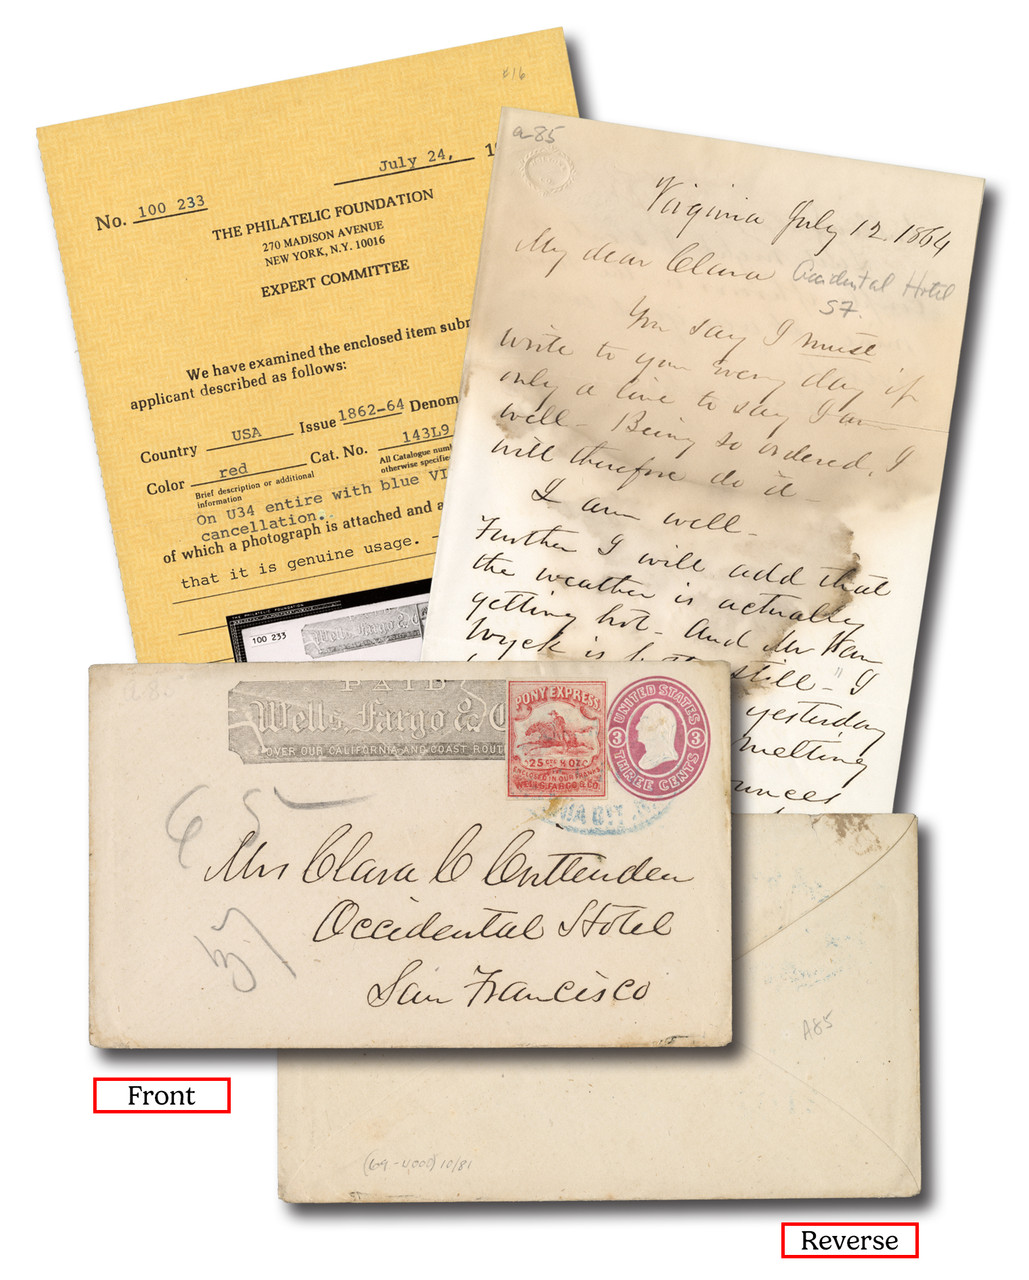 ¢16
July 24, 1
No. 100 233
THE PHILATELIC FOUNDATION
270 MADISON AVENUE
NEW YORK, N.Y. 10016
EXPERT COMMITTEE
We have examined the enclosed item subm
applicant described as follows:
Country USA Issue 1862-64 Denom
Color red Cat. No. 143L9
Brief description or additional
information
All Catalogue num
otherwise specifie
On U34 entire with blue VI
cancellation.
of which a photograph is attached and a
that it is genuine usage.
THE PHILATELIC FOUNDATION
100 233
Wells, Fargo & C
a-85
Virginia July 12. 1864
My dear Clara
Occidental Hotel
S7.
You say I must
write to you every day if
only a line to say I am
well- Being so ordered, I
will therefore do it-
I am well-
Further I will add that
the weather is actually
getting hot- And Mr Van
Wyck is still-" I
yesterday
melting
ounces
PAID
Wells, Fargo & C
OVER OUR CALIFORNIA AND COAST ROUT
PONY EXPRESS
25 CTS. ½ OZ.
ENCLOSED IN OUR FRANKS
WELLS, FARGO & CO.
UNITED STATES
3 3
THREE CENTS
Mrs Clara C Crittenden
Occidental Hotel
San Francisco
A85
(69-4000) 10/81
Front
Reverse